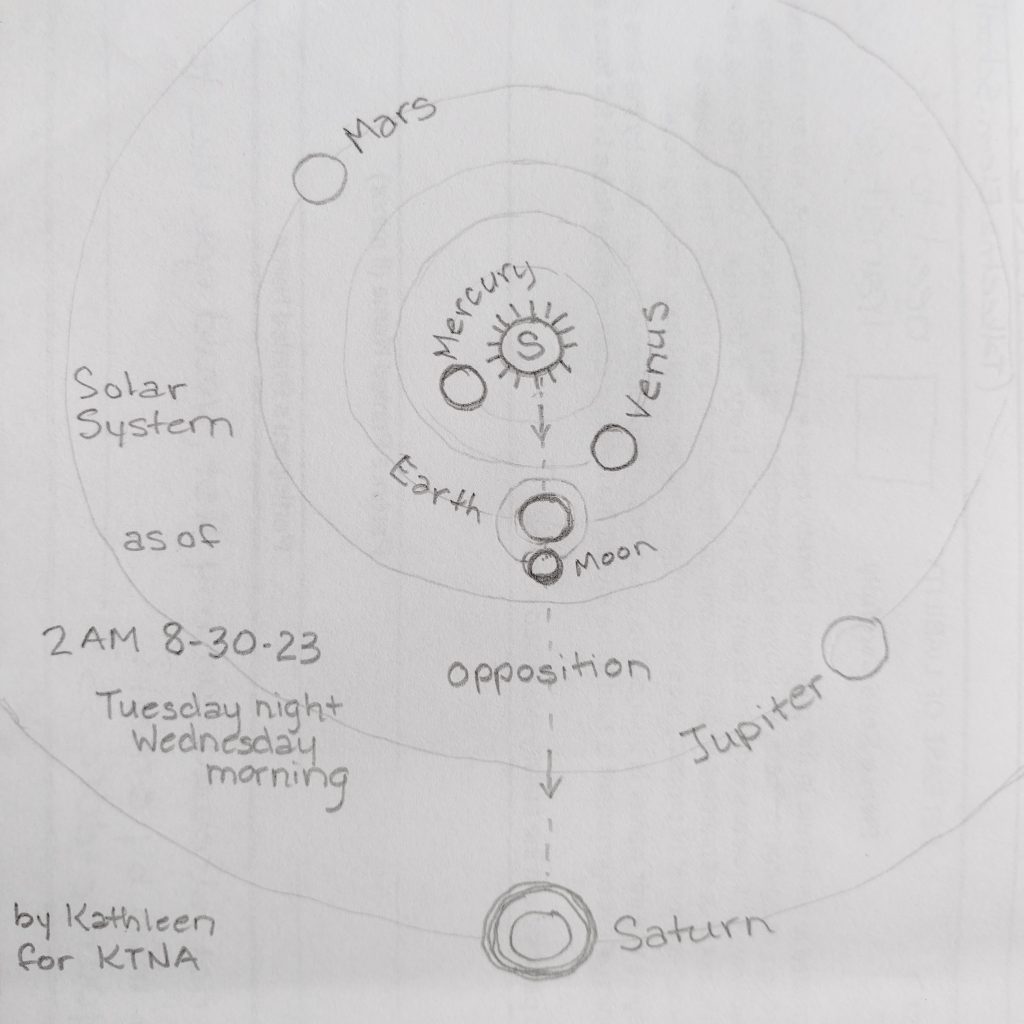 Mars
Mercury
S
Venus
Solar
System
Earth
as of
Moon
2 AM 8-30-23
opposition
Tuesday night
Wednesday
morning
Jupiter
by Kathleen
for KTNA
Saturn